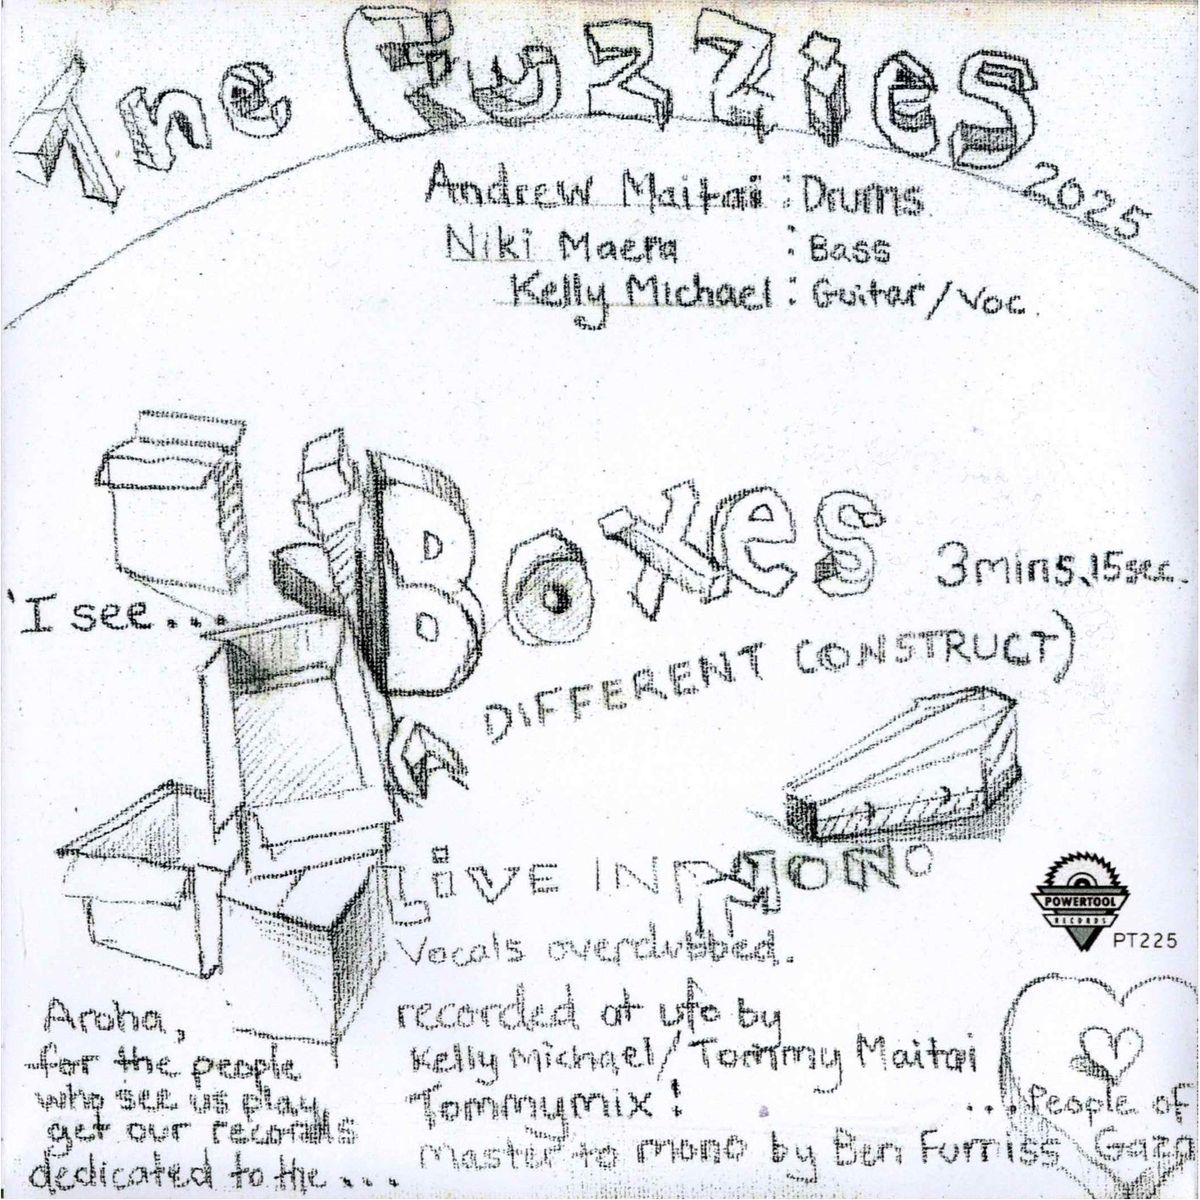 The Fuzzies
2025
Andrew Maitai : Drums
Niki Maera : Bass
Kelly Michael : Guitar/Voc.
Boxes
3mins,15sec.
'I see...
(A DIFFERENT CONSTRUCT)
LIVE IN MONO
Vocals overdubbed.
POWERTOOL
RECORDS
PT225
recorded at ufo by
Kelly Michael/Tommy Maitai
Tommymix!
master to mono by Ben Furniss
Aroha,
for the people
who see us play,
get our records
dedicated to the...
...People of
Gaza